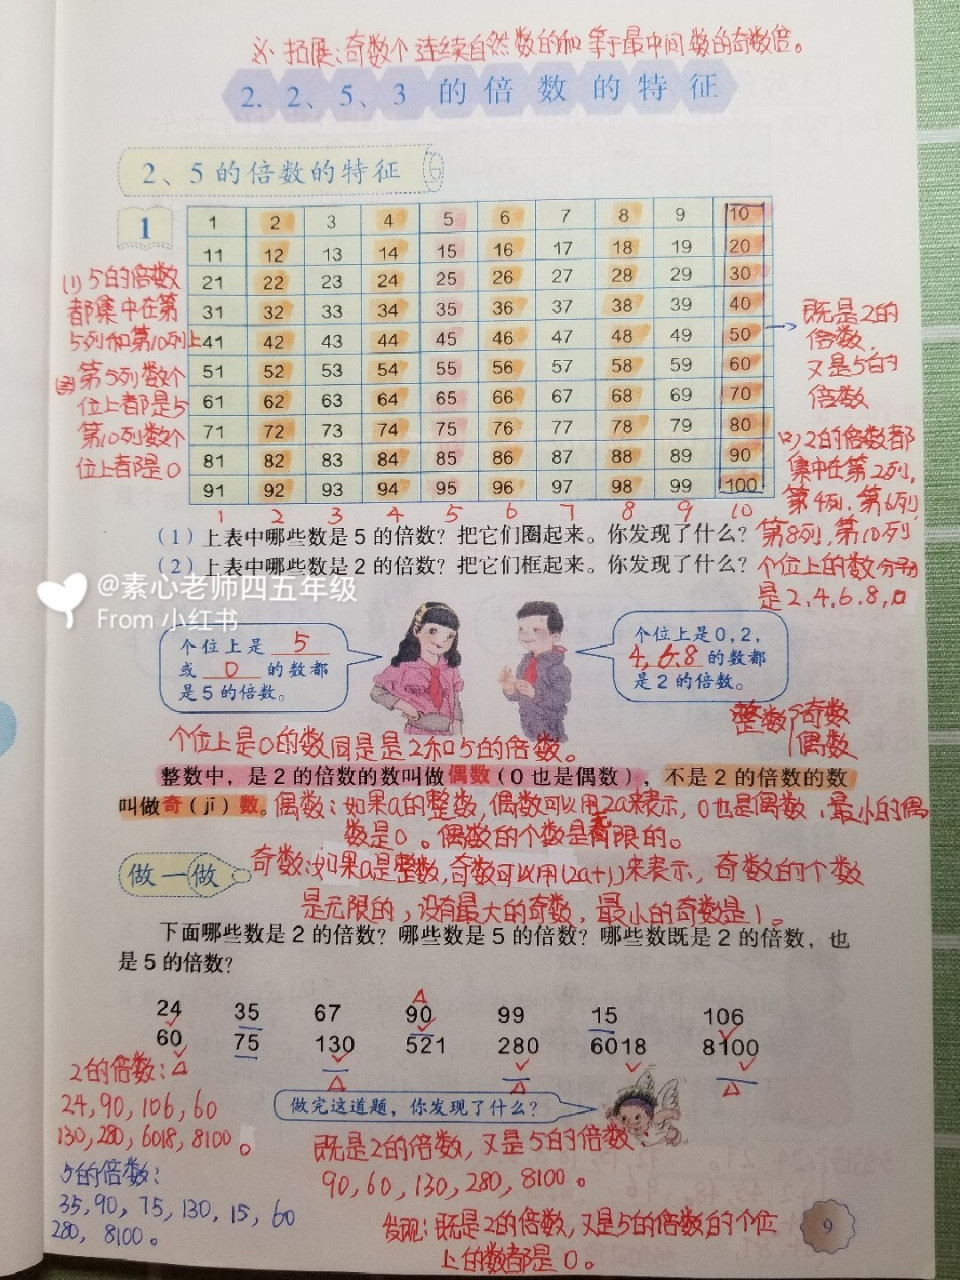 ※ 拓展：奇数个连续自然数的和等于最中间数的奇数倍。
2. 2、5、3 的倍数的特征
2、5的倍数的特征
1
1 2 3 4 5 6 7 8 9 10
11 12 13 14 15 16 17 18 19 20
21 22 23 24 25 26 27 28 29 30
31 32 33 34 35 36 37 38 39 40
41 42 43 44 45 46 47 48 49 50
51 52 53 54 55 56 57 58 59 60
61 62 63 64 65 66 67 68 69 70
71 72 73 74 75 76 77 78 79 80
81 82 83 84 85 86 87 88 89 90
91 92 93 94 95 96 97 98 99 100
1 2 3 4 5 6 7 8 9 10
(1) 5的倍数
都集中在第
5列和第10列上
第5列数个
位上都是5
第10列数个
位上都是0
既是2的
倍数,
又是5的
倍数
2的倍数都
集中在第2列,
第4列,第6列
第8列,第10列
个位上的数分别
是2,4,6,8,0
（1）上表中哪些数是 5 的倍数？把它们圈起来。你发现了什么？
（2）上表中哪些数是 2 的倍数？把它们框起来。你发现了什么？
@素心老师四五年级
From 小红书
个位上是 5
或 0 的数都
是 5 的倍数。
个位上是 0，2，
4,6.8 的数都
是 2 的倍数。
整数 奇数
偶数
个位上是0的数同是是2和5的倍数。
整数中，是 2 的倍数的数叫做偶数（0 也是偶数），不是 2 的倍数的数
叫做奇（jī）数。
偶数：如果a的整数,偶数可以用2a来表示，0也是偶数，最小的偶
数是0。偶数的个数是无限的。
奇数：如果a是整数,奇数可以用(2a+1)来表示，奇数的个数
是无限的，没有最大的奇数，最小的奇数是1。
做一做
下面哪些数是 2 的倍数？哪些数是 5 的倍数？哪些数既是 2 的倍数，也
是 5 的倍数？
24 35 67 90 99 15 106
60 75 130 521 280 6018 8100
2的倍数：
24,90,106,60
130,280,6018,8100。
5的倍数：
35,90,75,130,15,60
280,8100。
做完这道题，你发现了什么？
既是2的倍数,又是5的倍数
90,60,130,280,8100。
发现：既是2的倍数,又是5的倍数的个位
上的数都是0。
9